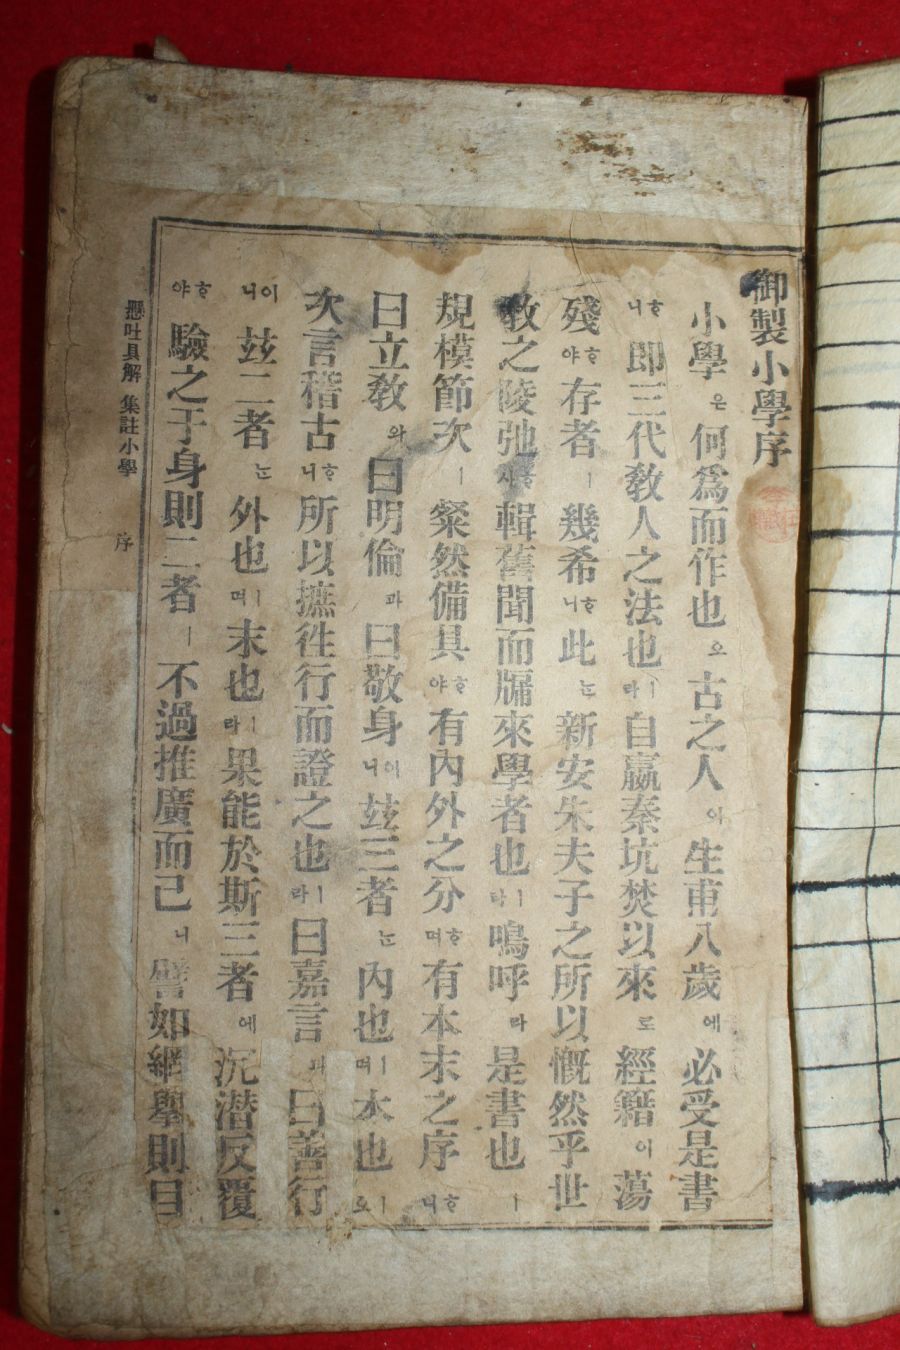 御製小學序
小學은何爲而作也오古之人이生甫八歲에必受是書
하니即三代敎人之法也ㅣ라自嬴秦坑焚以來로經籍이蕩
殘하야存者ㅣ幾希하니此는新安朱夫子之所以慨然乎世
敎之陵弛하사輯舊聞而牖來學者也ㅣ라嗚呼라是書也ㅣ
規模節次ㅣ粲然備具하야有內外之分하며有本末之序하니
曰立敎와曰明倫과曰敬身이니玆三者는內也ㅣ며本也ㅣ오
次言稽古하니所以摭往行而證之也ㅣ라曰嘉言과曰善行
이니玆二者는外也ㅣ며末也ㅣ라果能於斯三者에沉潛反覆
하야驗之于身則二者ㅣ不過推廣而已니譬如網擧則目
懸吐具解 集註小學 序